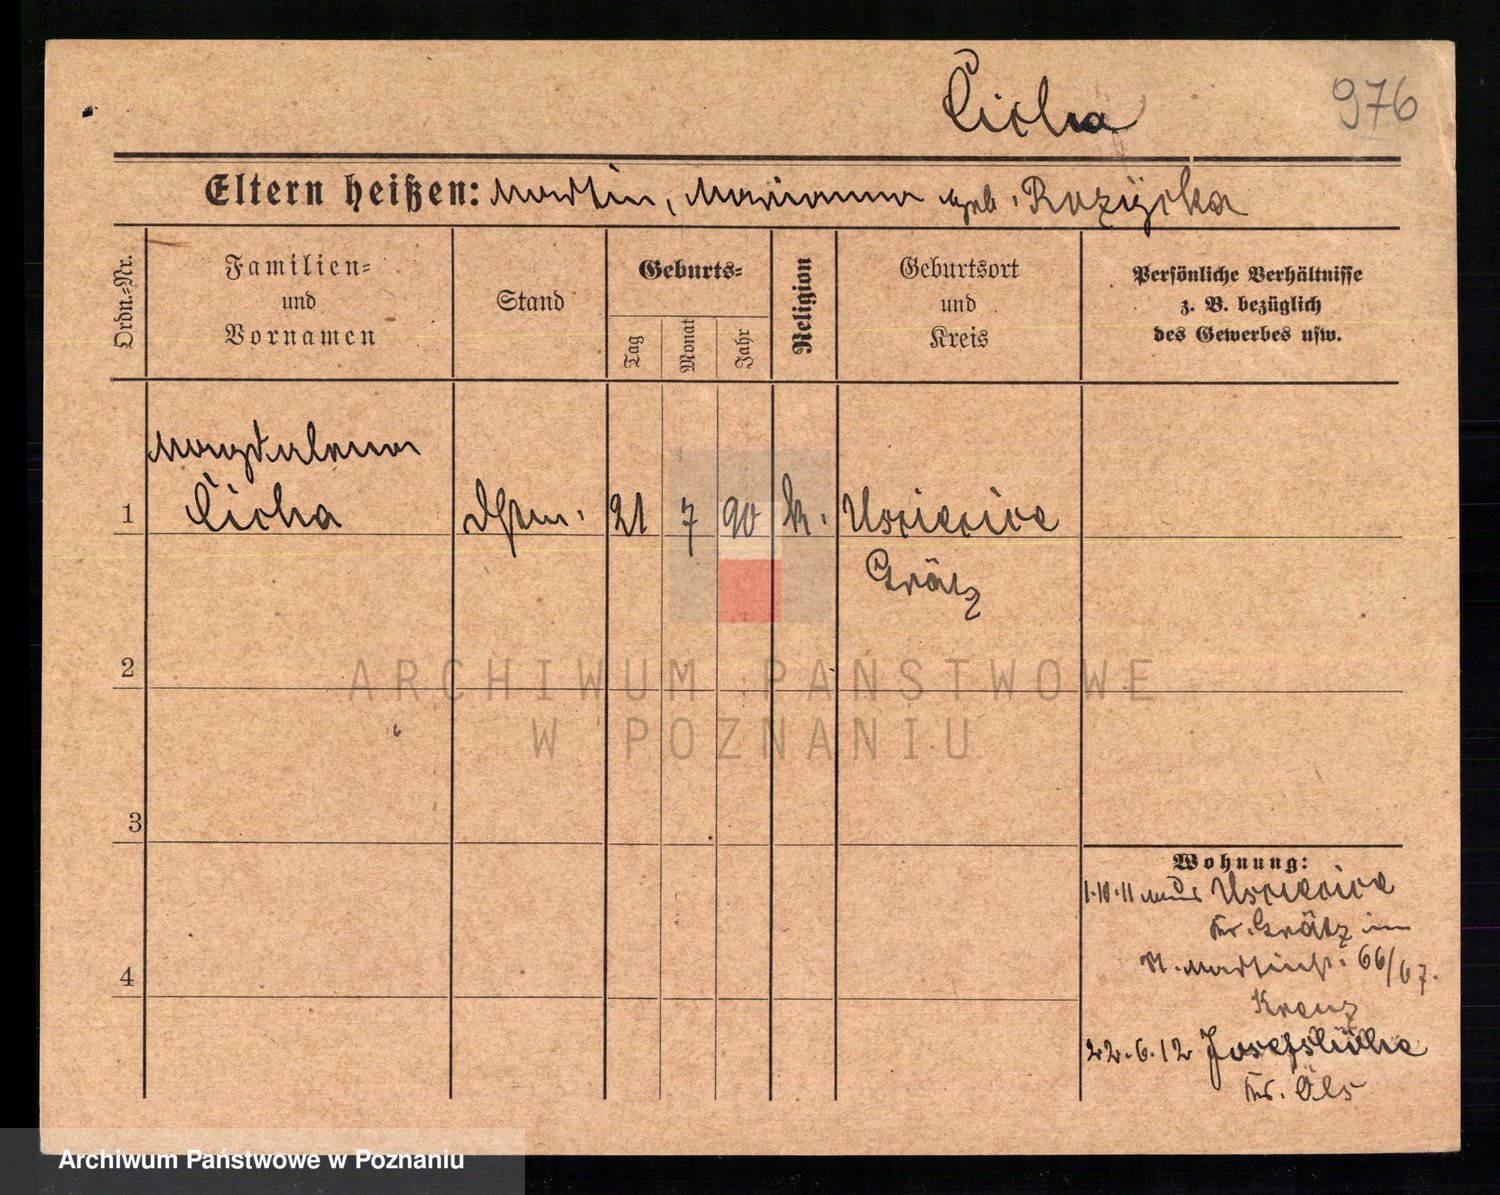 Cicha
976
Eltern heißen: Martin, Marianna geb. Rozÿcka
Ordn.-Nr.
Familien-
und
Vornamen
Stand
Geburts-
Tag
Monat
Jahr
Religion
Geburtsort
und
Kreis
Persönliche Verhältnisse
z. B. bezüglich
des Gewerbes usw.
Magdalena
1 Cicha 21 7 90 k. Usciecice
Grätz
2
3
4
Wohnung:
1.10.11 Usciecice
Kr. Grätz in
St. Martinst. 66/67.
Kreuz
22.6.12 Josefshöhe
Kr. Öls
ARCHIWUM PAŃSTWOWE
W POZNANIU
Archiwum Państwowe w Poznaniu